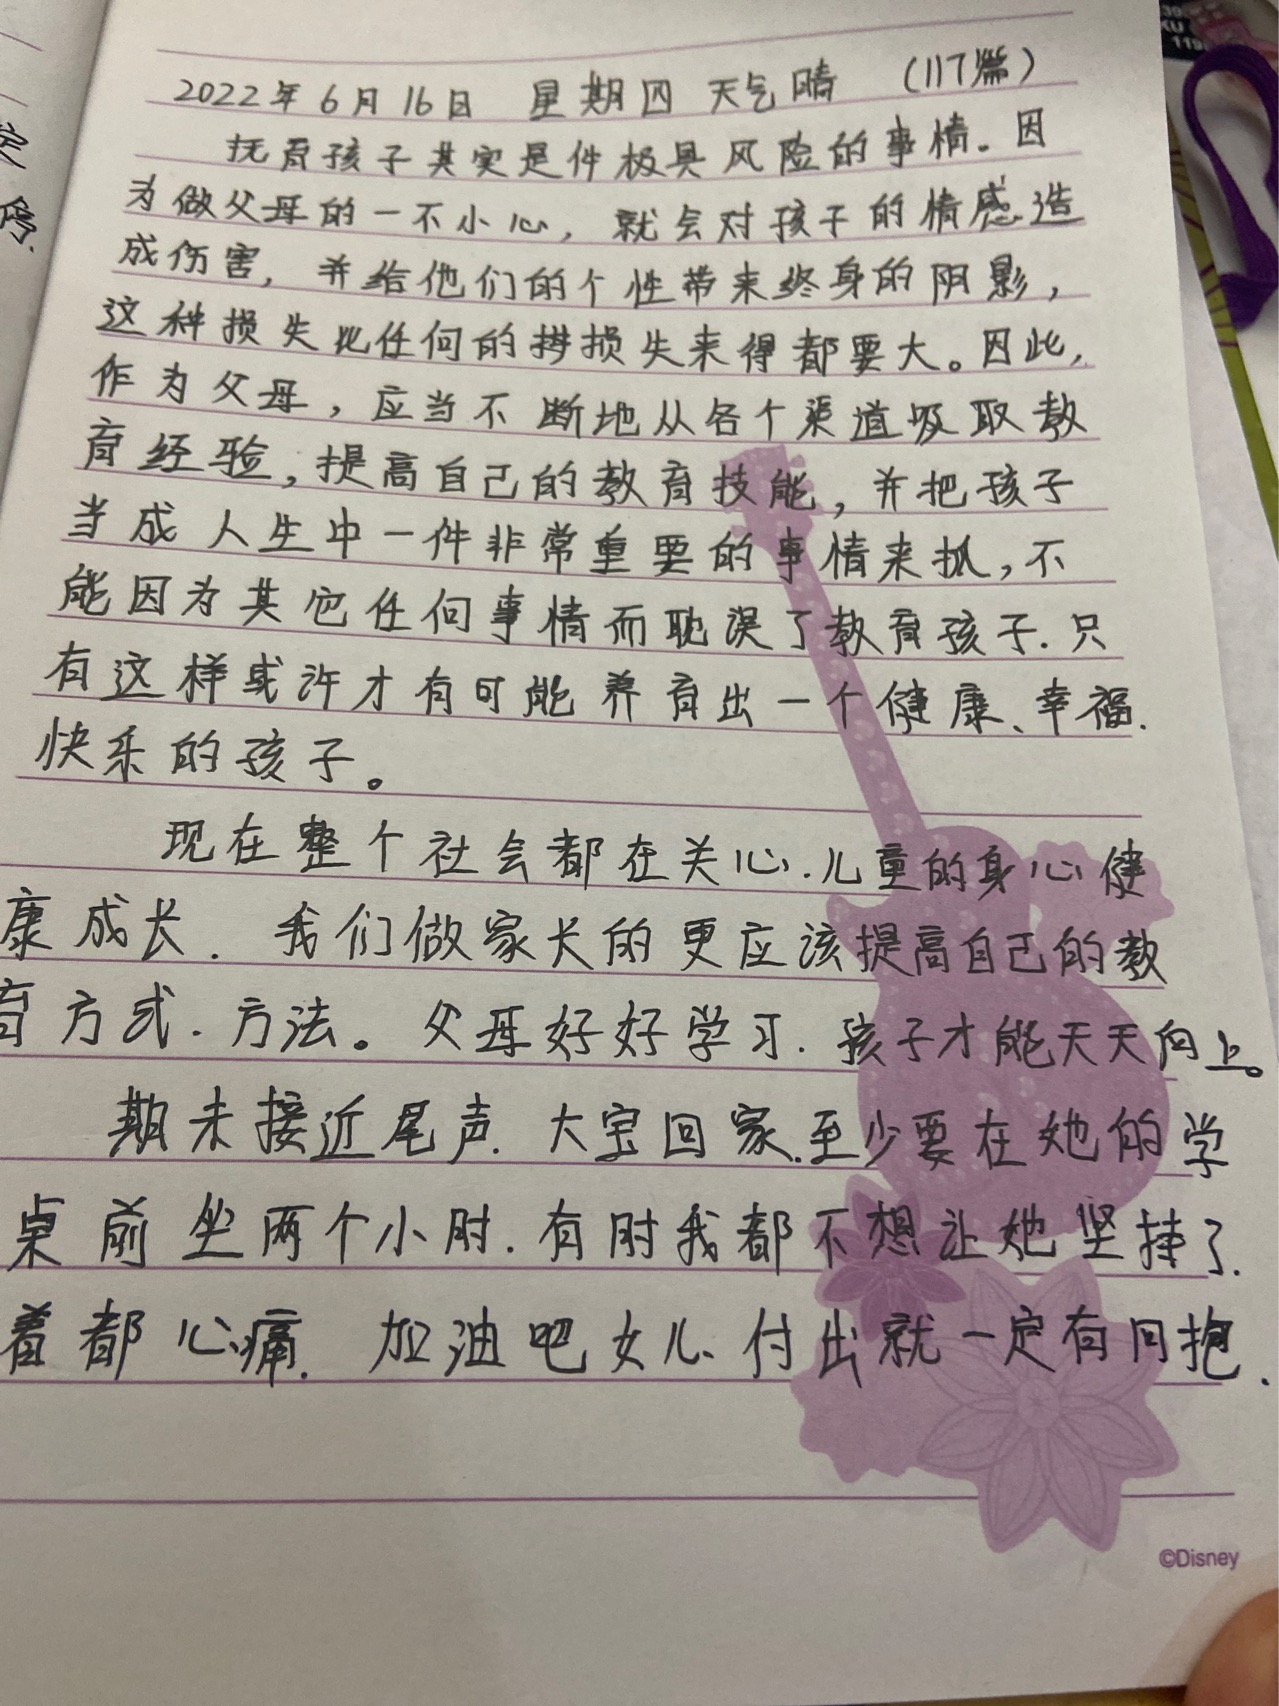 2022年6月16日 星期四 天气晴 (117篇)
抚育孩子其实是件极具风险的事情。因
为做父母的一不小心，就会对孩子的情感造
成伤害，并给他们的个性带来终身的阴影，
这种损失比任何的损失来得都要大。因此，
作为父母，应当不断地从各个渠道吸取教
育经验，提高自己的教育技能，并把孩子
当成人生中一件非常重要的事情来抓，不
能因为其它任何事情而耽误了教育孩子.只
有这样或许才有可能养育出一个健康、幸福.
快乐的孩子。
现在整个社会都在关心.儿童的身心健
康成长.我们做家长的更应该提高自己的教
育方式.方法。父母好好学习.孩子才能天天向上。
期末接近尾声.大宝回家.至少要在她的学
桌前坐两个小时.有时我都不想让她坚持了.
着都心痛.加油吧女儿.付出就一定有回抱.
©Disney
39
KU
119